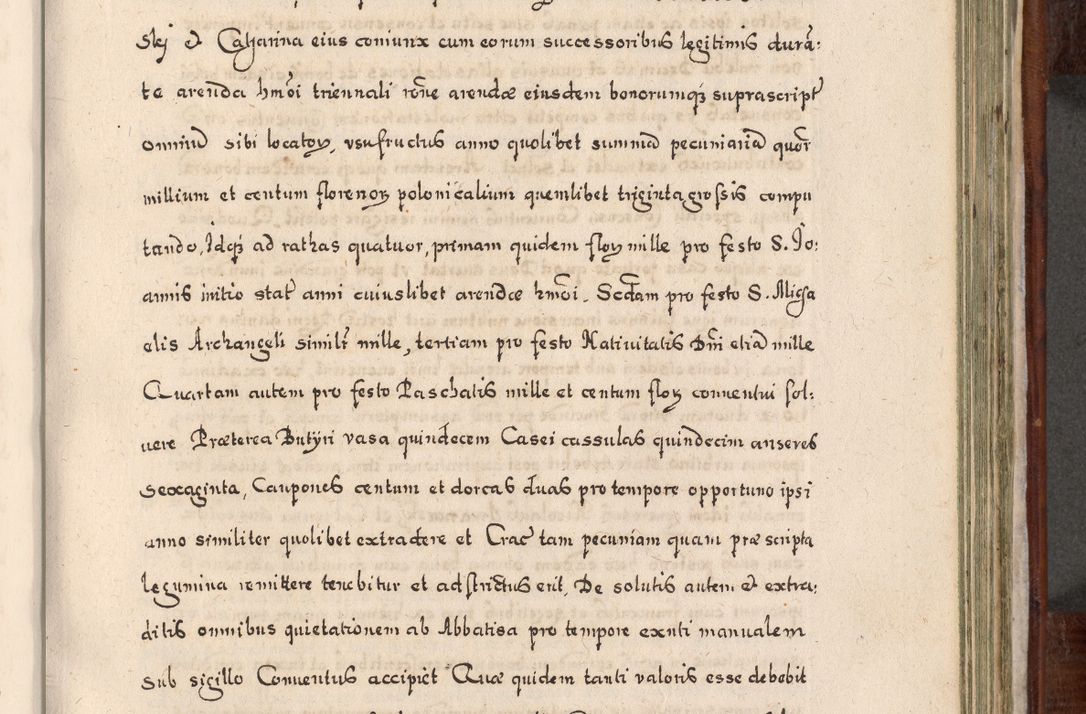 skj et Catharina eius coniunx cum eorum successoribus legitimis durã:
te arenda hmõi triennali rõne arendæ eiusdem bonorumq; suprascript
omniũ sibi locatoꝝ, vsufructus anno quolibet summã pecuniariã quor
millium et centum florenoꝝ polonicalium quemlibet triginta grossis compu
tando, Idq; ad rathas quatuor, primam quidem floꝝ mille pro festo S. Jo:
annis initio stat anni cuiuslibet arendæ hmõi. Secdam pro festo S. Micha
elis Archangeli similr mille, tertiam pro festo Natiuitatis Dni etiã mille
Quartam autem pro festo Paschatis mille et centum floꝝ conuentui sol:
uere Præterea Butÿri vasa quindecem Casei cassulas quindecim anseres
sexaginta, Caupones centum et dorcas duas pro tempore opportuno ipsi
anno similiter quolibet extradere et Crac tam pecuniam quam præscripta
legumina remittere tenebitur et adstrictus erit. De solutis autem et extra:
ditis omnibus quietationem ab Abbatisa pro tempore exnti manualem
sub sigillo Conuentus accipiet Quæ quidem tanti valoris esse debebit